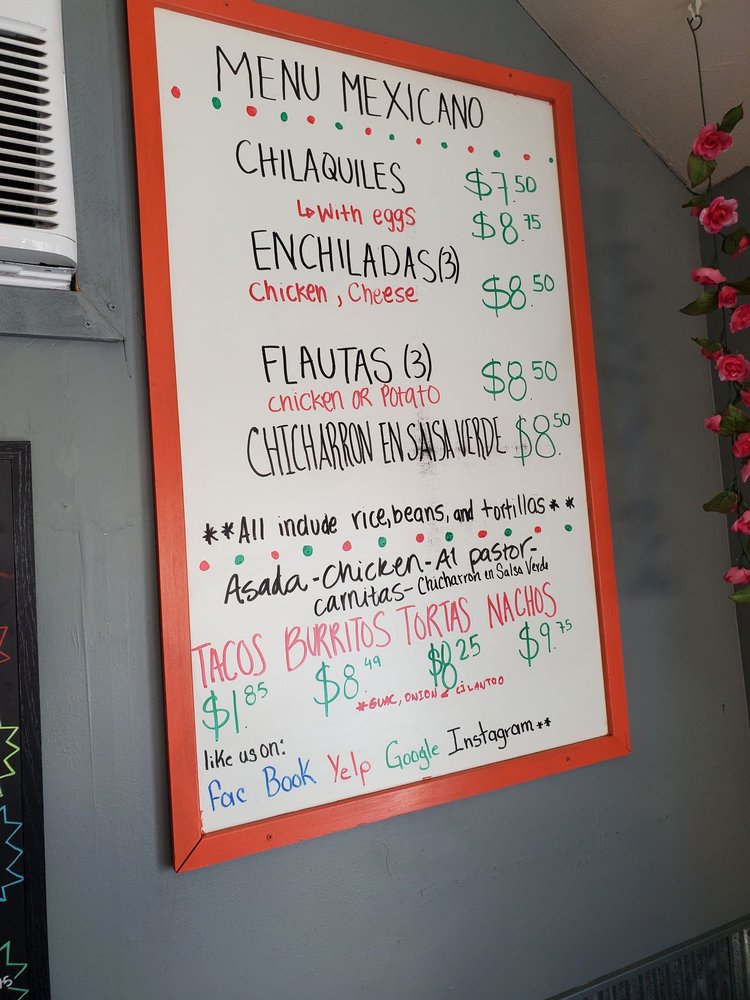 MENU MEXICANO
CHILAQUILES $7.50
↳With eggs $8.75
ENCHILADAS(3)
Chicken, Cheese $8.50
FLAUTAS (3) $8.50
chicken OR Potato
CHICHARRON EN SALSA VERDE $8.50
**All include rice, beans, and tortillas**
Asada-Chicken-Al pastor-
carnitas-Chicharron en Salsa Verde
TACOS BURRITOS TORTAS NACHOS
$1.85 $8.49 $8.25 $9.75
*GUAC, ONION & CILANTRO
like us on:
Fac Book Yelp Google Instagram**